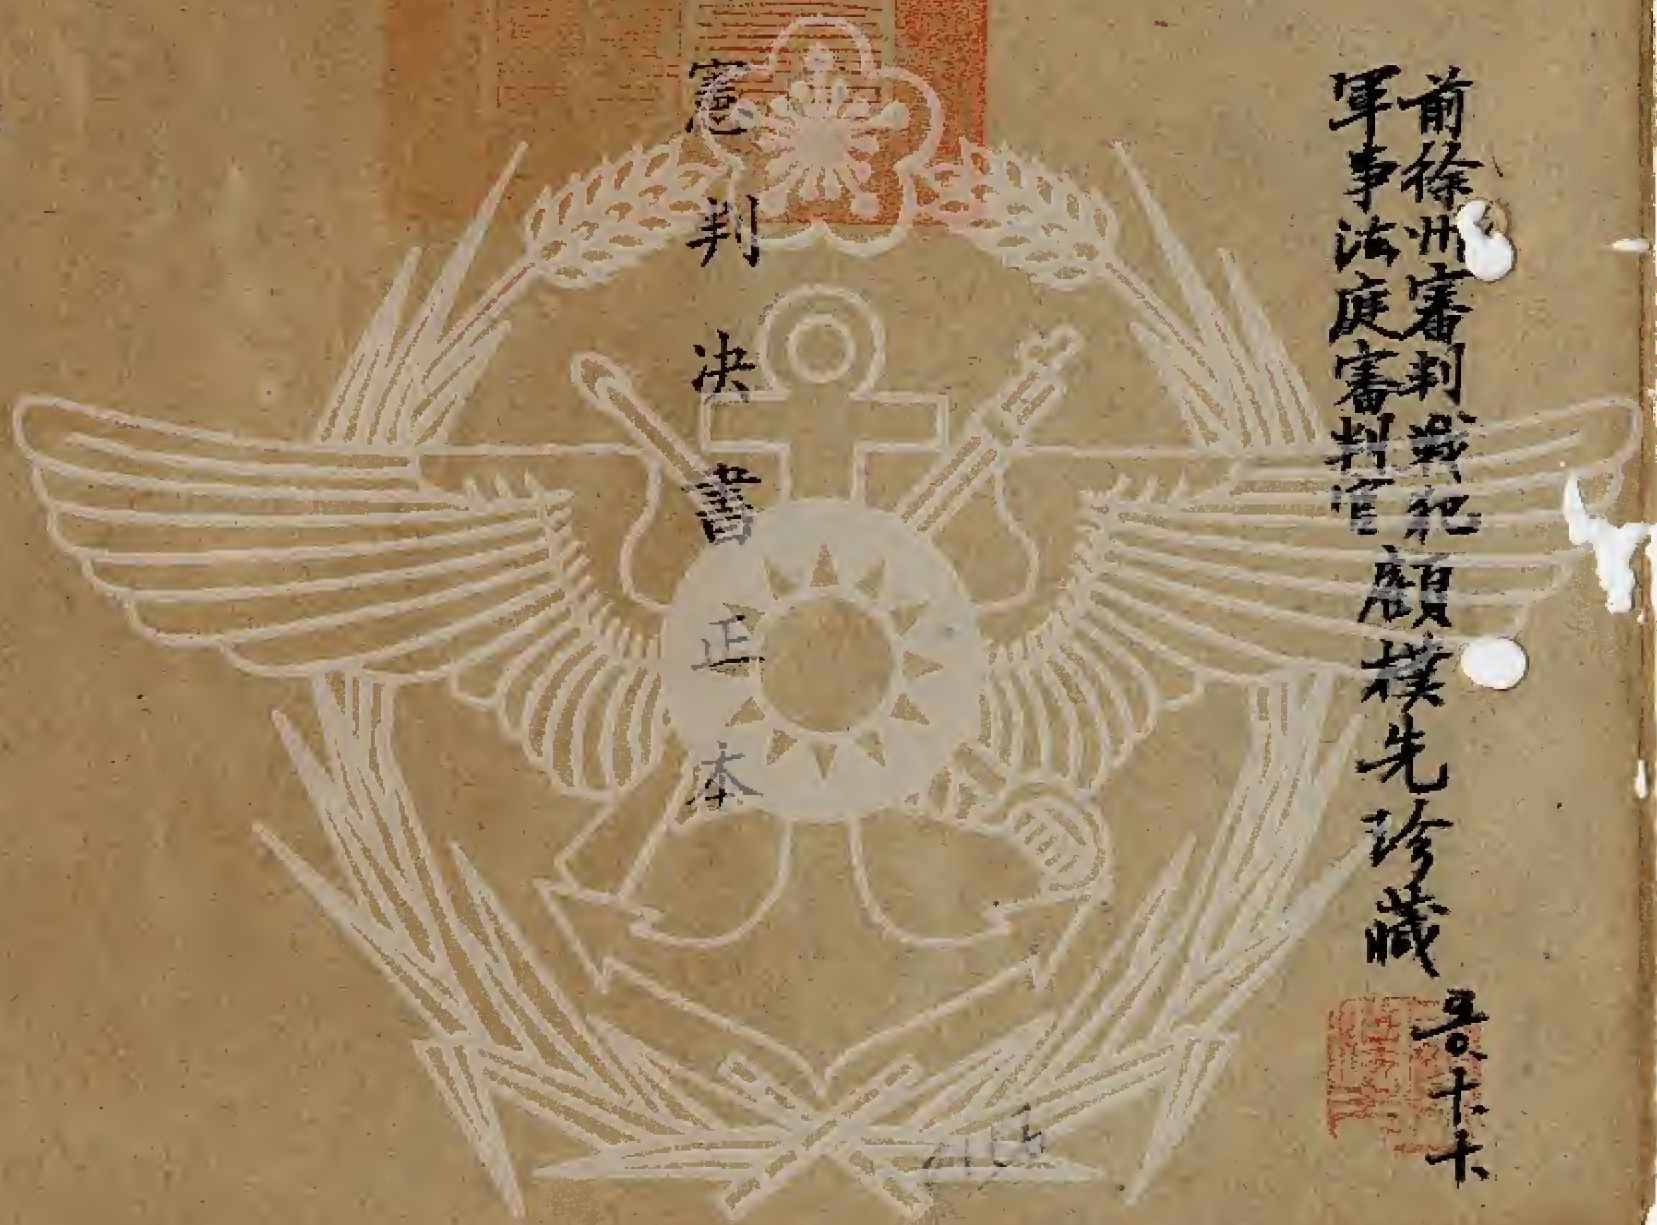 前徐州審判戰犯
軍事法庭審判官
顧樸先珍藏
憲判决書正本